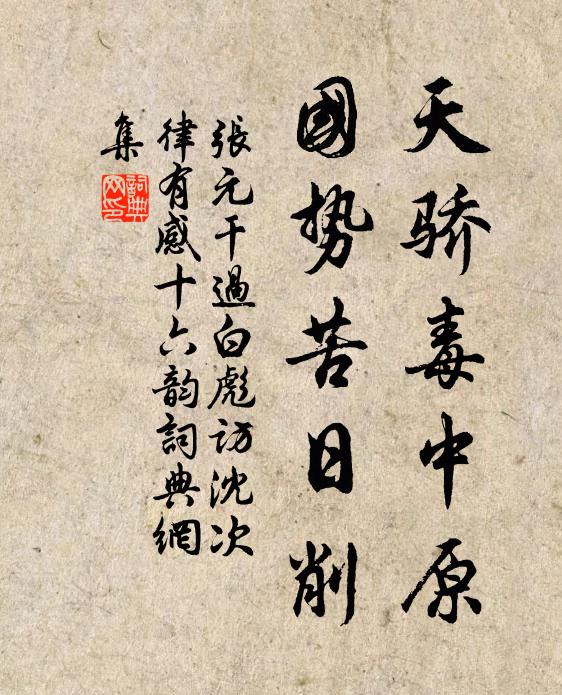 天骄毒中原
國势苦日削
張元干過白彪訪沈次
律有感十六韵詞典網
集
詞典
网印